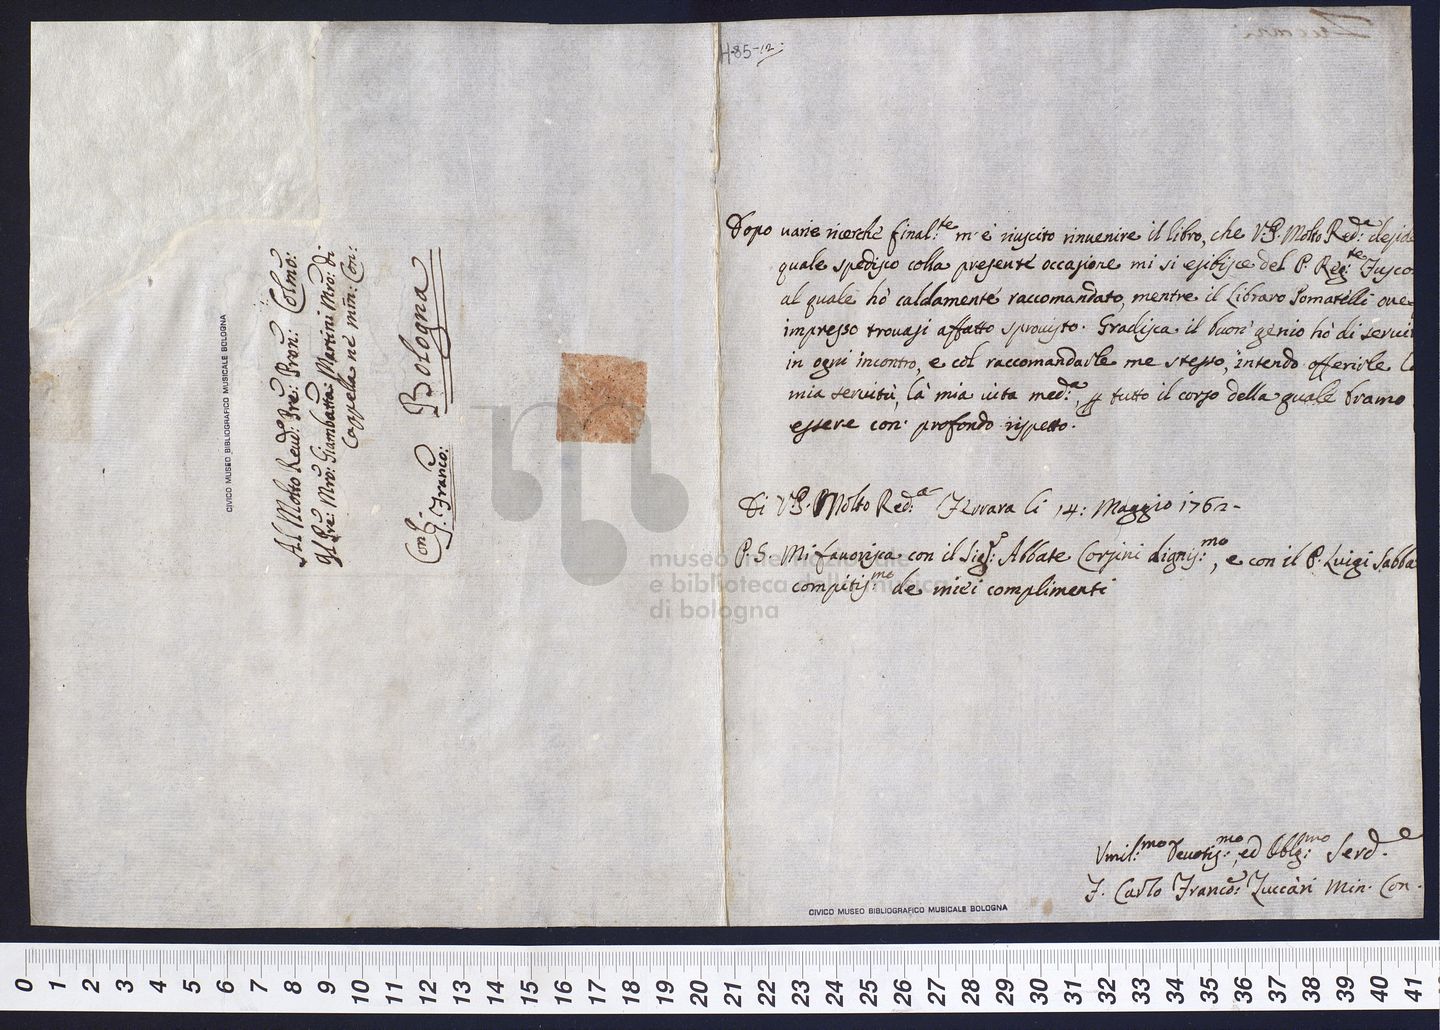 H-85-12:
Zuccari
Al Molto Revdo: Pre: Pron: Colmo:
Il Pre: Mro: Giambatta: Martini Mro: di
Cappella ne' Min: Con:
Bologna
Con
S. Franco:
CIVICO MUSEO BIBLIOGRAFICO MUSICALE BOLOGNA
Dopo varie ricerche final:te m' è riuscito rinvenire il libro, che V:P: Molto Red:a deside
quale spedisco colla presente occasione mi si esibisce del P. Reg:te Fusco
al quale hò caldamente raccomandato, mentre il Libraro Pomatelli ove
impresso trovasi affatto sprovisto. Gradisca il buon genio hò di servir
in ogni incontro, e col raccomandarle me stesso, intendo offerirle l
mia servitù, là mia vita med:a, p tutto il corso della quale bramo
essere con profondo rispetto.
Di V:P: Molto Red:a Ferrara li 14: Maggio 1762-
P.S. Mi favorisca con il Sig:r Abbate Corsini dignis:mo, e con il P. Luigi Sabba
compitis:mo de miei complimenti
Umil:mo Devotis:mo, ed Oblg:mo Serd.e
F. Carlo Franco: Zuccari Min. Con.
CIVICO MUSEO BIBLIOGRAFICO MUSICALE BOLOGNA
museo internazionale
e biblioteca della musica
di bologna
0 1 2 3 4 5 6 7 8 9 10 11 12 13 14 15 16 17 18 19 20 21 22 23 24 25 26 27 28 29 30 31 32 33 34 35 36 37 38 39 40 41